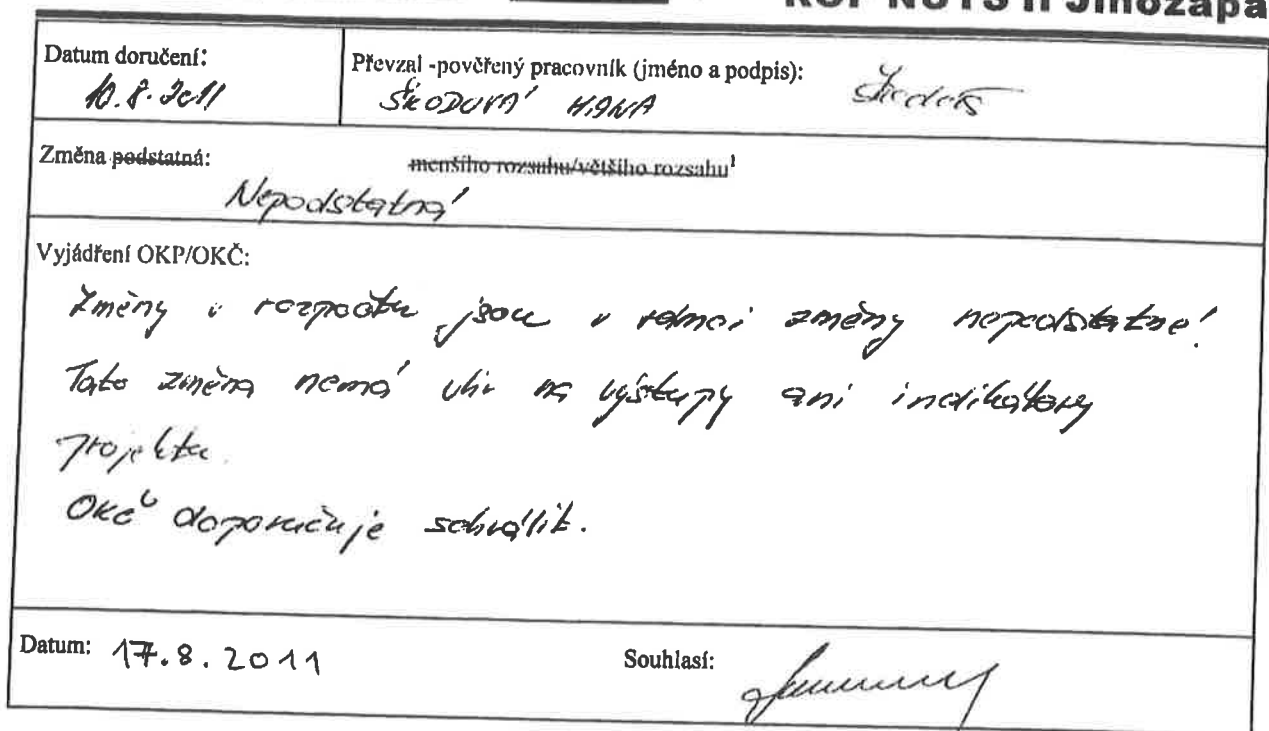 ROP NUTS II Jihozápa
Datum doručení:
Převzal -pověřený pracovník (jméno a podpis):
10.8.2011
ŠKODOVÁ HANA
Změna podstatná:
menšího rozsahu/většího rozsahu¹
Nepodstatná
Vyjádření OKP/OKČ:
Změny v rozpočtu jsou v rámci změny nepodstatné!
Tato změna nemá vliv na výstupy ani indikátory
projektu.
OKČ doporučuje schválit.
Datum: 17.8.2011
Souhlasí: